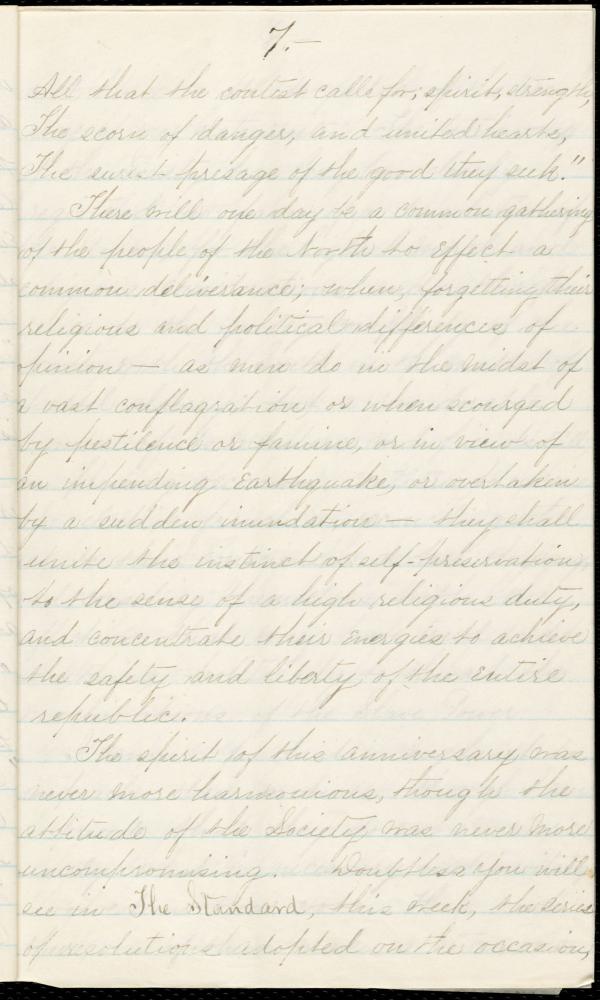 7.—
All that the contest calls for; spirit, strength,
The scorn of danger, and united hearts,
The surest presage of the good they seek."
There will one day be a common gathering
of the people of the North to effect a
common deliverance; when, forgetting their
religious and political differences of
opinion — as men do in the midst of
a vast conflagration or when scourged
by pestilence or famine, or in view of
an impending earthquake, or overtaken
by a sudden inundation — they shall
unite the instinct of self-preservation
to the sense of a high religious duty,
and concentrate their energies to achieve
the safety and liberty of the entire
republic.
The spirit of this anniversary was
never more harmonious, though the
attitude of the Society was never more
uncompromising. Doubtless you will
see in The Standard, this week, the series
of resolutions adopted on the occasion,